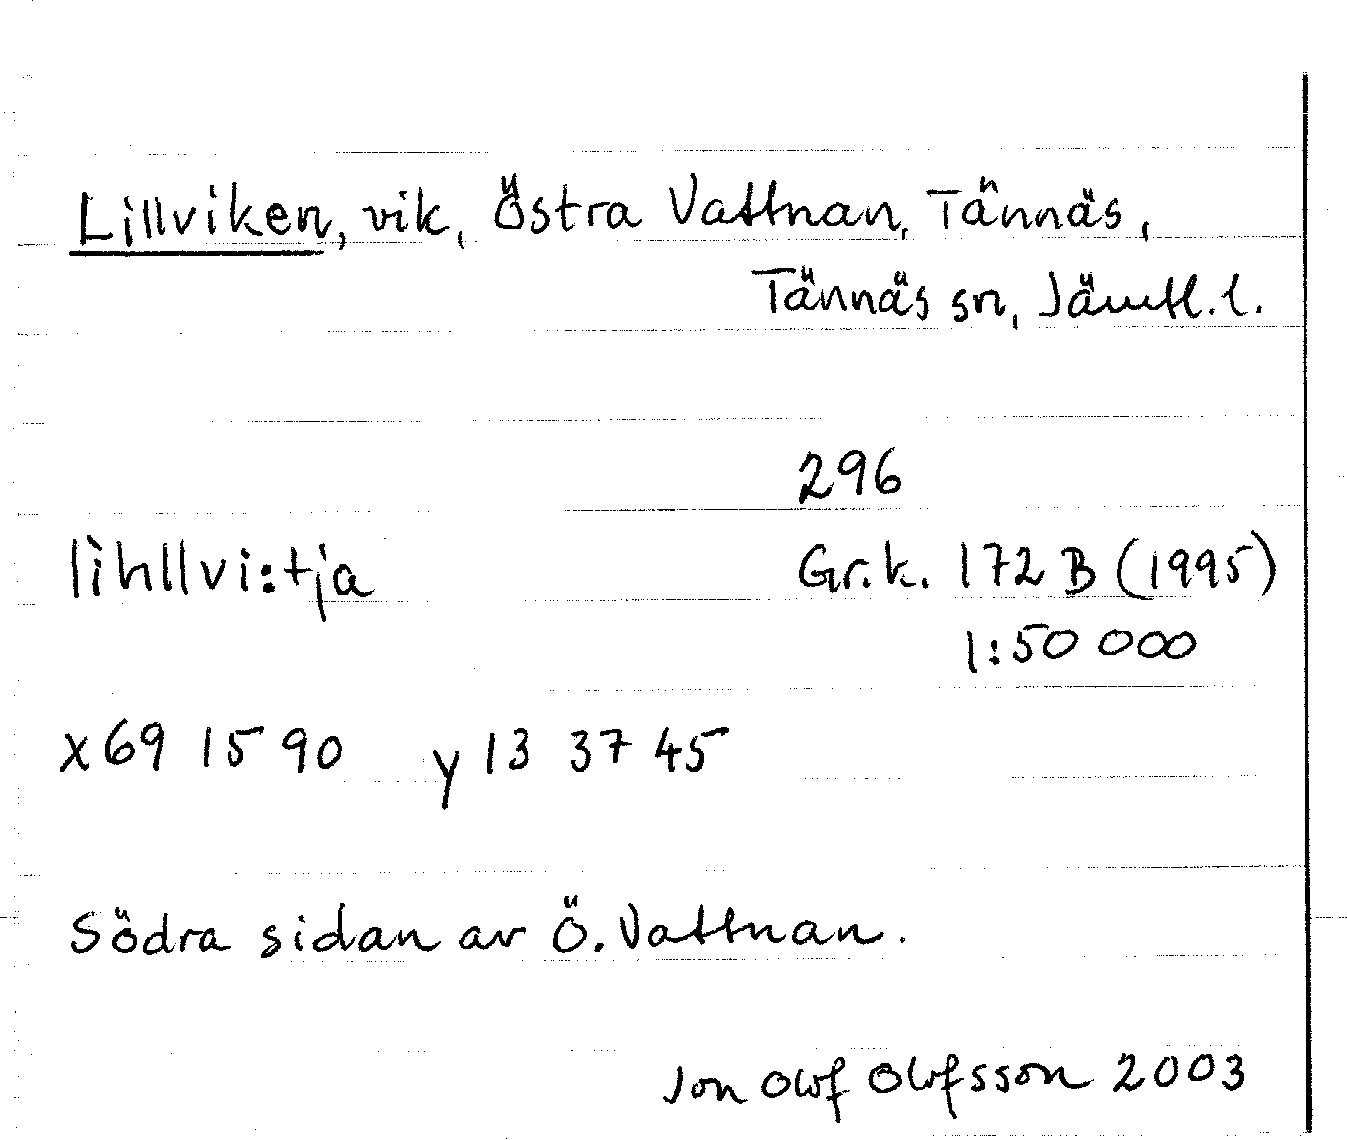 Lillviken, vik, Östra Vattnan, Tännäs,
Tännäs sn, Jämtl. l.
296
lìhllvi:tja Gr.k. 172 B (1995)
1:50 000
x 69 15 90 y 13 37 45
Södra sidan av Ö. Vattnan.
Jon Olof Olofsson 2003